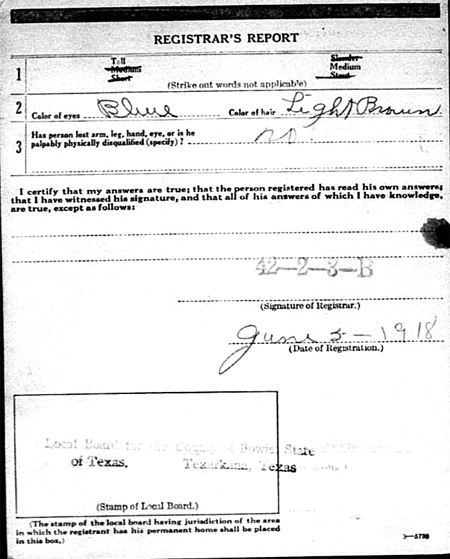 REGISTRAR'S REPORT
1
Tall
Medium
Short
Slender
Medium
Stout
(Strike out words not applicable)
2 Color of eyes Blue Color of hair Light Brown
3 Has person lost arm, leg, hand, eye, or is he
palpably physically disqualified (specify)? no.
I certify that my answers are true; that the person registered has read his own answers;
that I have witnessed his signature, and that all of his answers of which I have knowledge,
are true, except as follows:
42-2-3-B
(Signature of Registrar.)
June 5-1918
(Date of Registration.)
Local Board for the County of Bowie, State
of Texas, Texarkana, Texas
(Stamp of Local Board.)
(The stamp of the local board having jurisdiction of the area
in which the registrant has his permanent home shall be placed
in this box.)
3-5720